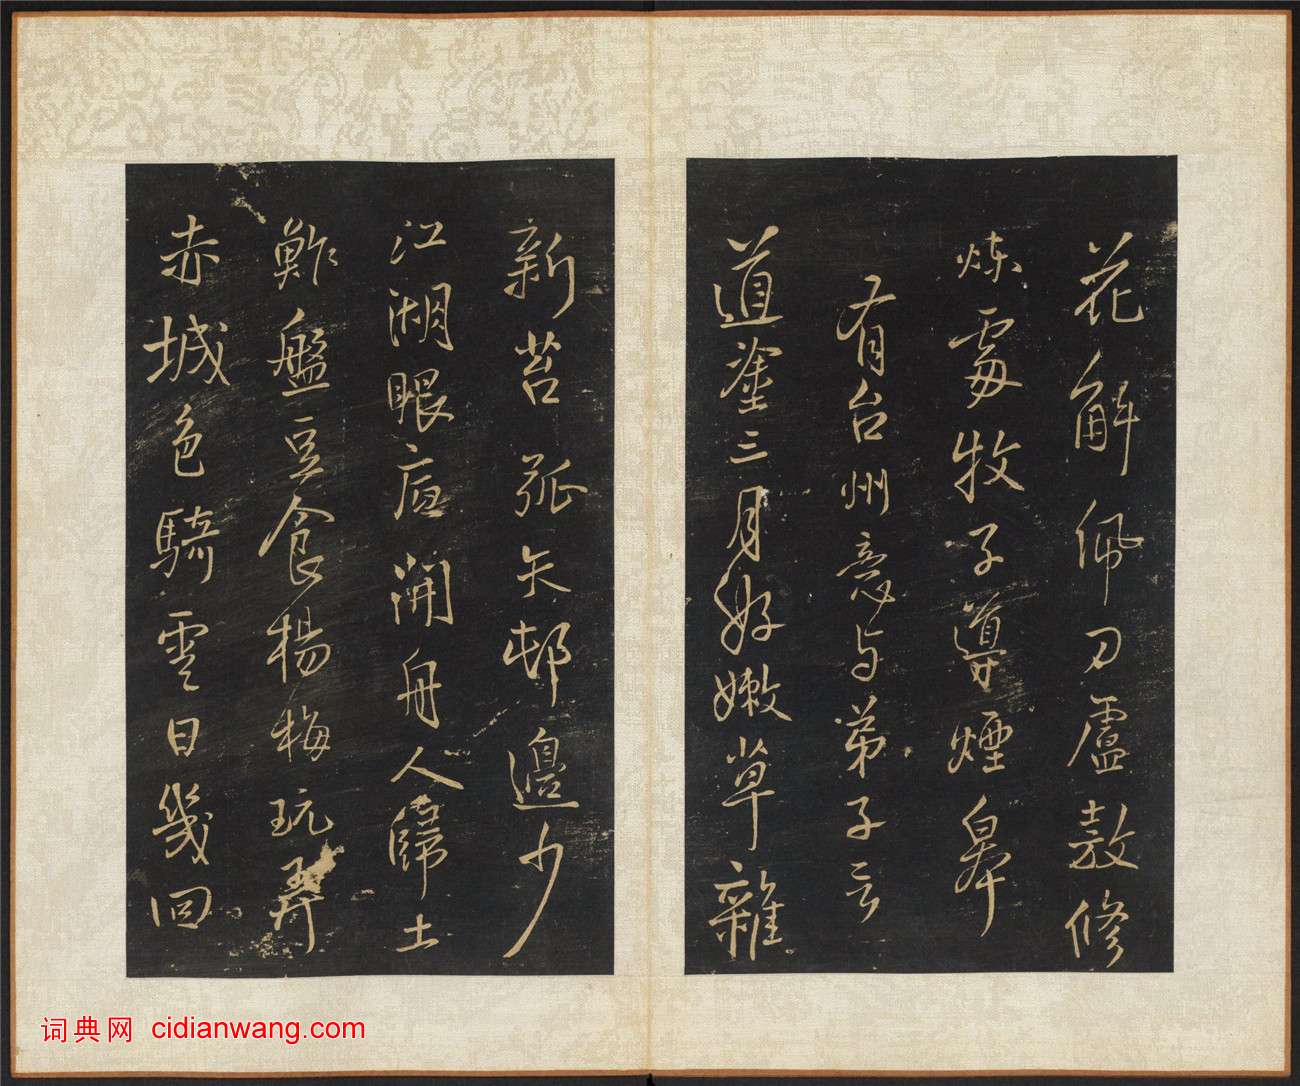 花解佩刀盧敖修
煉處牧子導煙皋
有台州意与弟子言
道塗三月好嫩草雜
新苔孤矢邨邊少
江湖眼底開舟人歸土
鮓盤豆食楊梅玩弄
赤城色騎雲日幾回
词典网 cidianwang.com